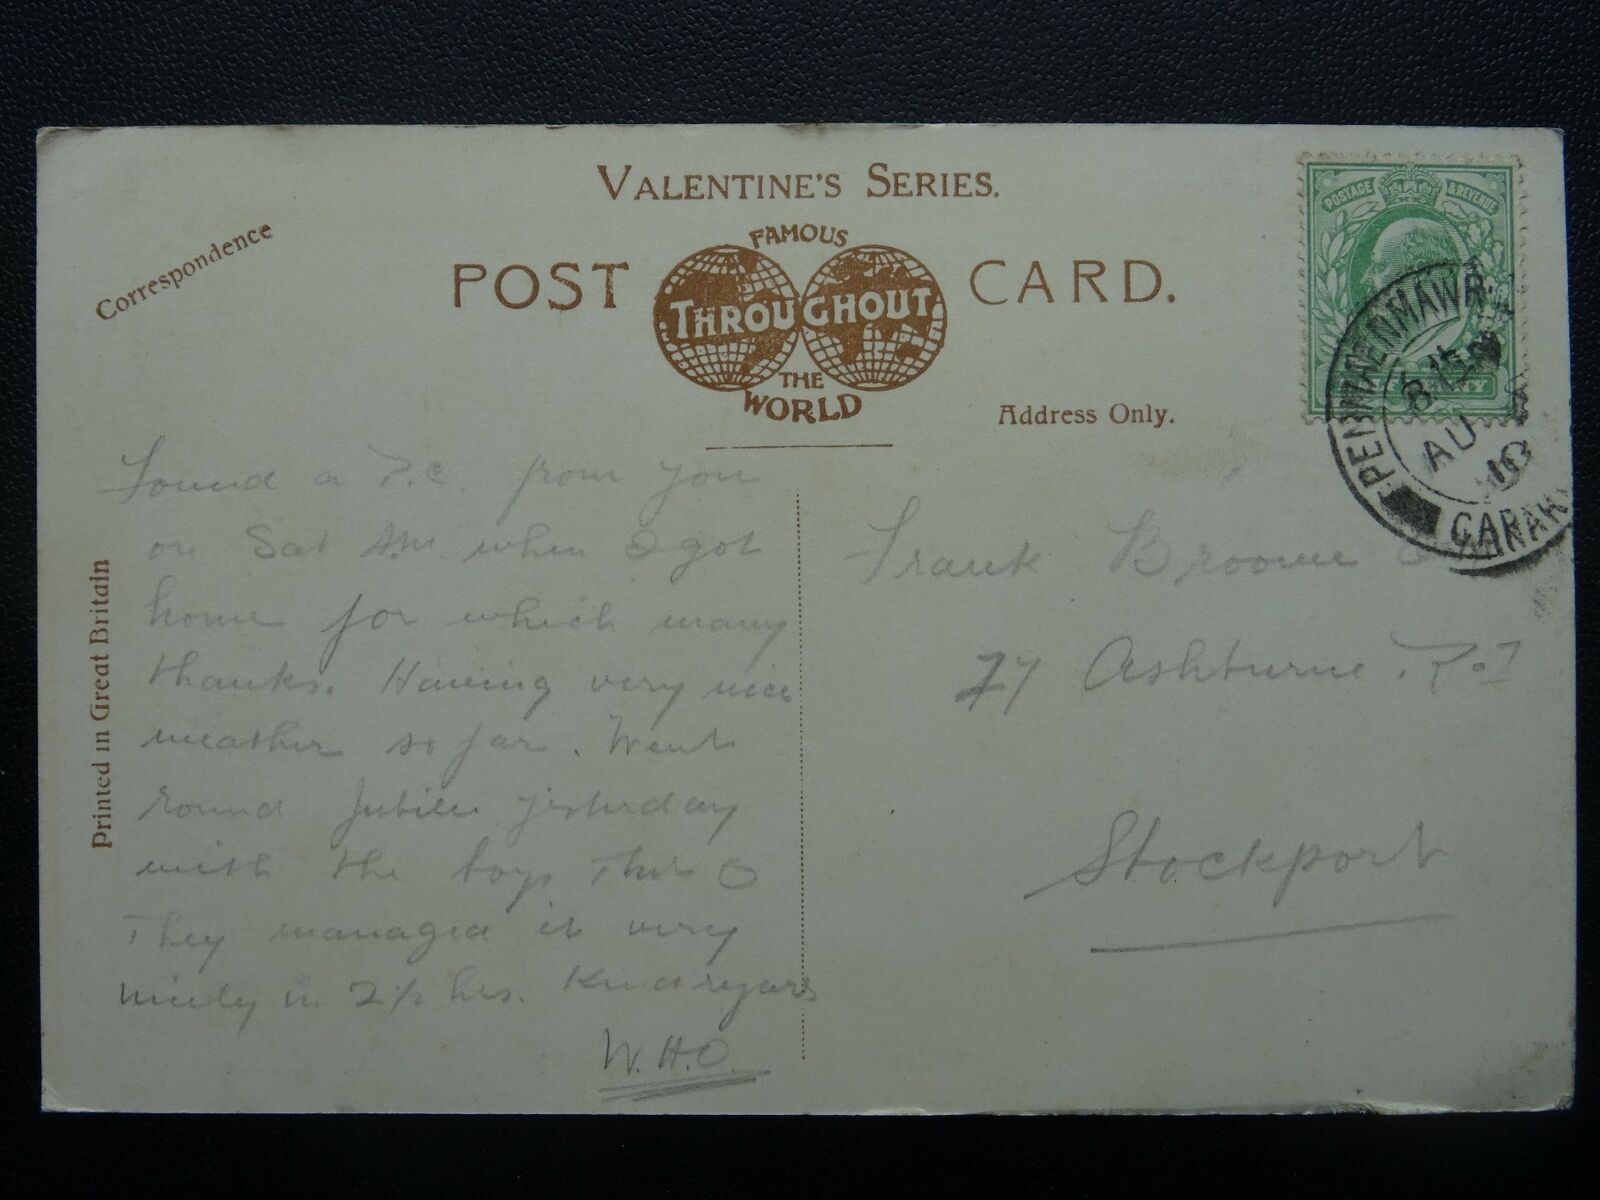 VALENTINE'S SERIES.
Correspondence
POST CARD.
FAMOUS
THROUGHOUT
THE
WORLD
Address Only.
Printed in Great Britain
POSTAGE & REVENUE
PENMAENMAWR
8.15 PM
AU
10
CARNAR
Found a P.C. from you
on Sat when I got
home for which many
thanks. Having very nice
weather so far. Went
round Jubilee yesterday
with the boys This
They managed it very
nicely in 2½ hrs. Kind regards
W.H.O.
Frank Broome
77 Ashburne Rd
Stockport